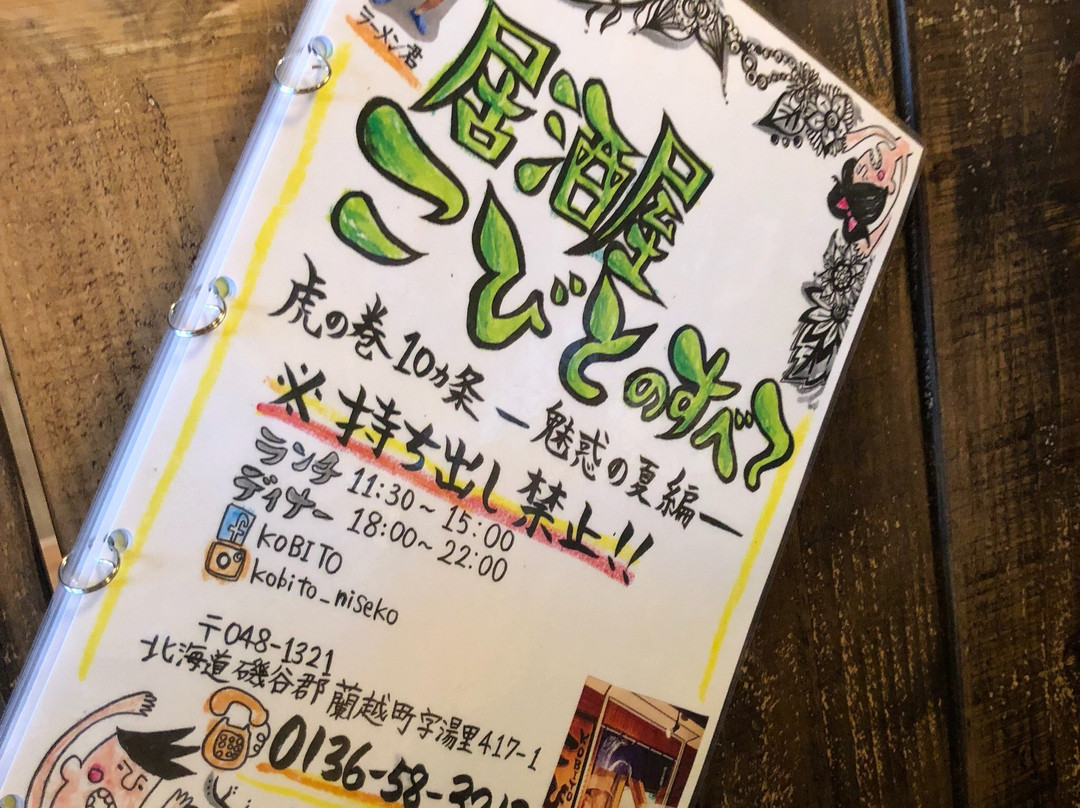 ラーメン君
居酒屋
こびとのすべて
虎の巻10ヵ条 ー魅惑の夏編ー
※持ち出し禁止!!
ランチ 11:30～15:00
ディナー 18:00～22:00
KOBITO
kobito_niseko
〒048-1321
北海道磯谷郡蘭越町字湯里417-1
0136-58-